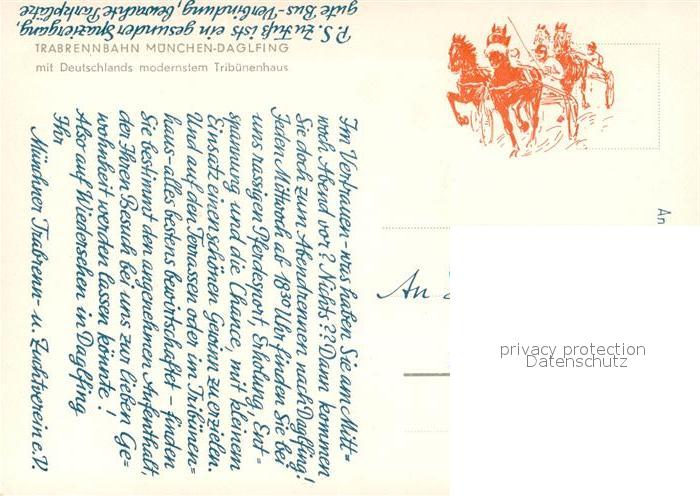 TRABRENNBAHN MÜNCHEN-DAGLFING
mit Deutschlands modernstem Tribünenhaus
Im Vertrauen - was haben Sie am Mitt=
woch Abend vor? Nichts?? Dann kommen
Sie doch zum Abendrennen nach Daglfing!
Jeden Mittwoch ab 18.30 Uhr finden Sie bei
uns rassigen Pferdesport, Erholung, Ent=
spannung und die Chance, mit kleinem
Einsatz einen schönen Gewinn zu erzielen.
Und auf den Terrassen oder im Tribünen=
haus - alles bestens bewirtschaftet - finden
Sie bestimmt den angenehmen Aufenthalt,
der Ihren Besuch bei uns zur lieben Ge=
wohnheit werden lassen könnte!
Also auf Wiedersehen in Daglfing
Ihr
Münchner Trabrenn- u. Zuchtverein e.V.
P.S. Zu Fuß ists ein gesunder Spaziergang,
gute Bus-Verbindung, bewachte Parkplätze
An
An
privacy protection
Datenschutz